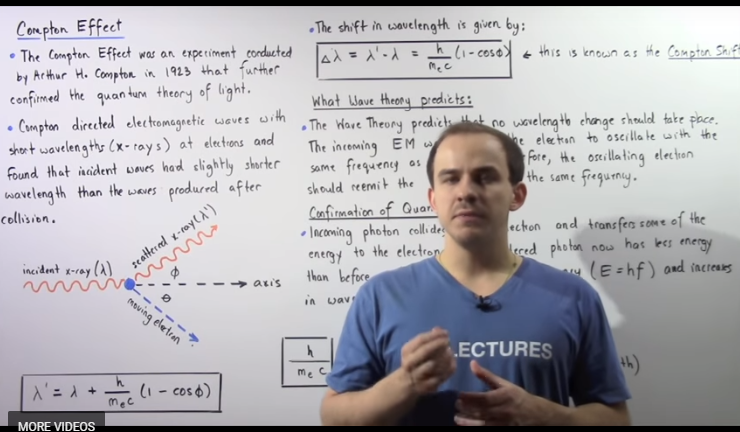 Compton Effect
• The Compton Effect was an experiment conducted
by Arthur H. Compton in 1923 that further
confirmed the quantum theory of light.
• Compton directed electromagnetic waves with
short wavelengths (x-rays) at electrons and
found that incident waves had slightly shorter
wavelength than the waves produced after
collision.
scattered x-ray (λ')
incident x-ray (λ)
ϕ
axis
θ
moving electron
λ' = λ + h/mₑc (1 - cosϕ)
• The shift in wavelength is given by:
Δλ = λ' - λ = h/mₑc (1 - cosϕ) ← this is known as the Compton Shift
What Wave theory predicts:
• The Wave Theory predicts that no wavelength change should take place.
The incoming EM the electron to oscillate with the
same frequency as the oscillating electron
should reemit the the same frequency.
Confirmation of
• Incoming photon and transfers some of the
energy to the photon now has less energy
than before (E = hf) and increases
in
h/mₑc
LECTURES
MORE VIDEOS